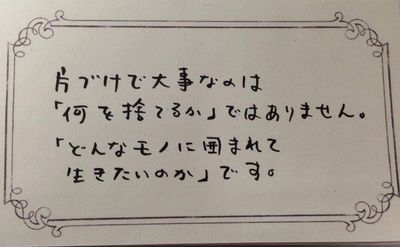 片づけで大事なのは
「何を捨てるか」ではありません。
「どんなモノに囲まれて
生きたいのか」です。